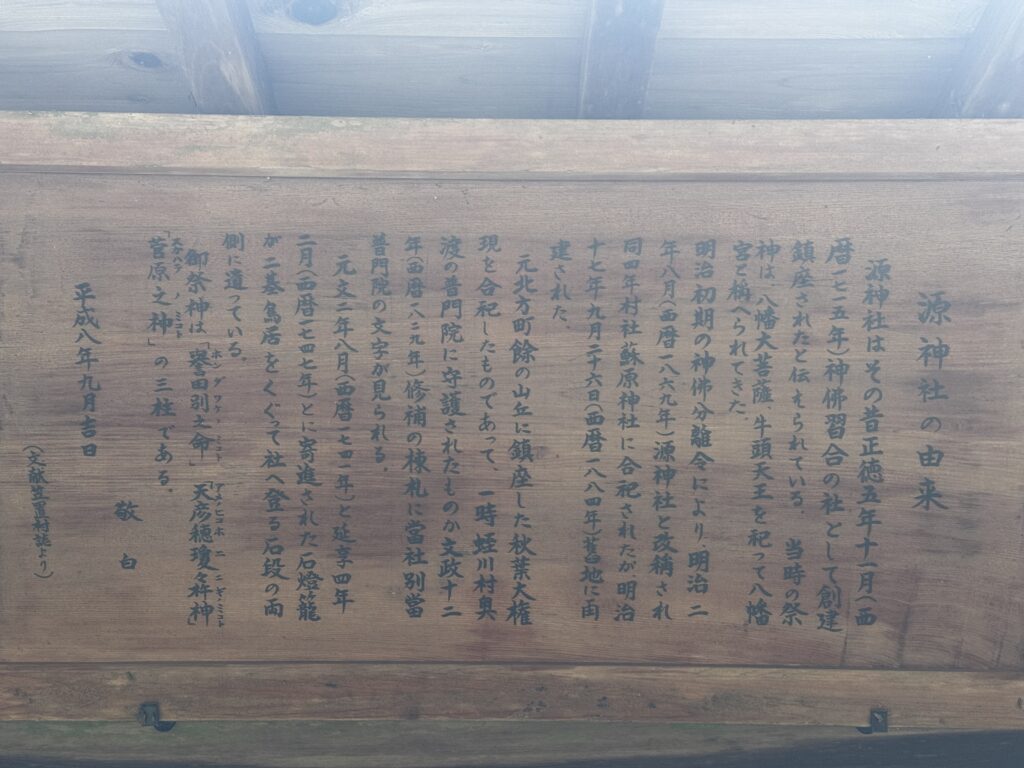 源神社の由来
源神社はその昔正徳五年十一月(西
暦一七一五年)神佛習合の社として創建
鎮座されたと伝えられている。当時の祭
神は、八幡大菩薩、牛頭天王を祀って八幡
宮と稱へられてきた。
明治初期の神佛分離令により、明治二
年八月(西暦一八六九年)源神社と改稱され
同四年村社蘇原神社に合祀されたが明治
十七年九月二十六日(西暦一八八四年)舊地に再
建された、
元北方町餘の山丘に鎮座した秋葉大権
現を合祀したものであって、一時蛭川村奥
渡の普門院に守護されたものか文政十二
年(西暦一八二九年)修補の棟札に當社別當
普門院の文字が見られる。
元文二年八月(西暦一七四一年)と延享四年
二月(西暦一七四七年)とに寄進された石燈籠
が二基鳥居をくぐって社へ登る石段の両
側に遺っている。
御祭神は「譽田別之命」天彦穂瓊々杵神」
「菅原之神」の三柱である。
平成八年九月吉日
敬白
(文献笠置村誌より)